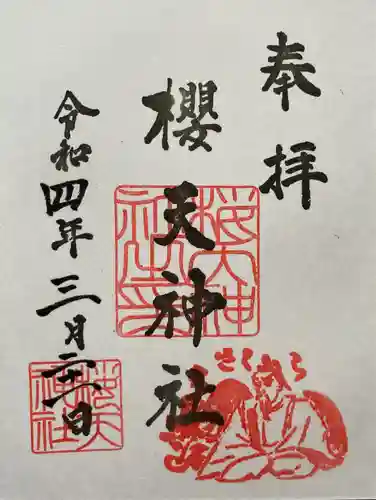 奉拝
櫻天神社
令和四年三月二十一日
桜天神
社之印
さくら
桜天
神社